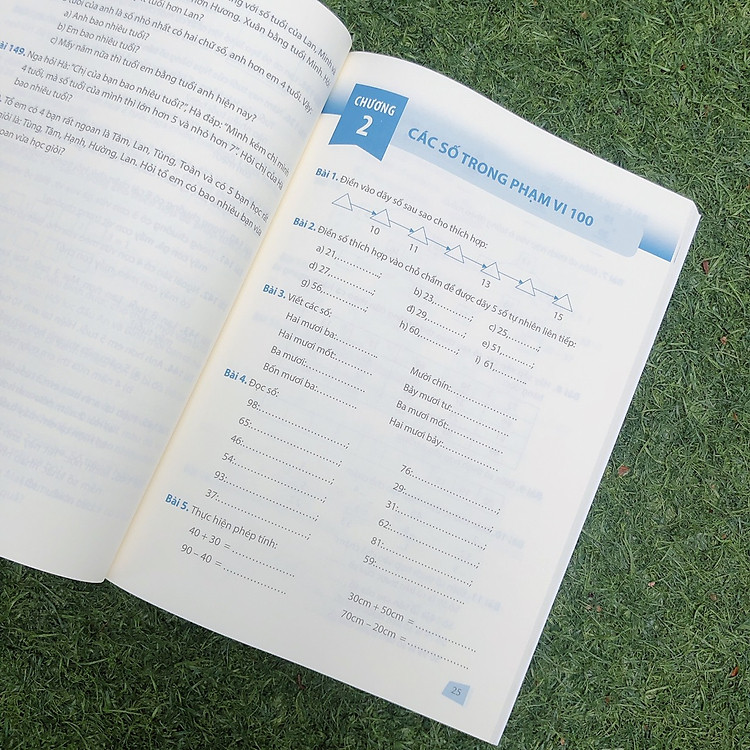 số tuổi của anh là số nhỏ nhất có hai chữ số, anh hơn em 4 tuổi. Vậy:
a) Anh bao nhiêu tuổi?
b) Em bao nhiêu tuổi?
c) Mấy năm nữa thì tuổi em bằng tuổi anh hiện nay?
Bài 149. Nga hỏi Hà: "Chị của bạn bao nhiêu tuổi?". Hà đáp: "Mình kém chị mình
4 tuổi, mà số tuổi của mình thì lớn hơn 5 và nhỏ hơn 7". Hỏi chị của Hà
bao nhiêu tuổi?
Tổ em có 4 bạn rất ngoan là Tâm, Lan, Tùng, Toàn và có 5 bạn học rất
giỏi là: Tùng, Tâm, Hạnh, Hường, Lan. Hỏi tổ em có bao nhiêu bạn vừa
ngoan vừa học giỏi?
CHƯƠNG
2
CÁC SỐ TRONG PHẠM VI 100
Bài 1. Điền vào dãy số sau sao cho thích hợp:
10 11 13 15
Bài 2. Điền số thích hợp vào chỗ chấm để được dãy 5 số tự nhiên liên tiếp:
a) 21,............; b) 23,............; c) 25,............;
d) 27,............; d) 29,............; e) 51,............;
g) 56,............; h) 60,............; i) 61,............;
Bài 3. Viết các số:
Hai mươi ba:............ Mười chín:............
Hai mươi mốt:............ Bảy mươi tư:............
Ba mươi:............ Ba mươi mốt:............
Bốn mươi ba:............ Hai mươi bảy:............
Bài 4. Đọc số:
98:............; 76:............;
65:............; 29:............;
46:............; 31:............;
54:............; 62:............;
93:............; 81:............;
37:............; 59:............;
Bài 5. Thực hiện phép tính:
40 + 30 =............ 30cm + 50cm =............
90 – 40 =............ 70cm – 20cm =............
25